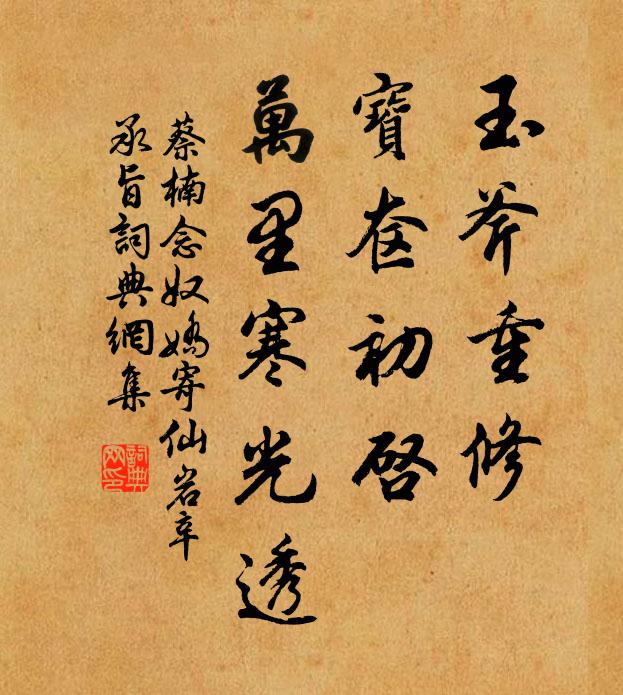 玉斧重修
寶奁初啓
萬里寒光透
蔡楠念奴嬌寄仙岩辛
承旨詞典網集
詞典网印